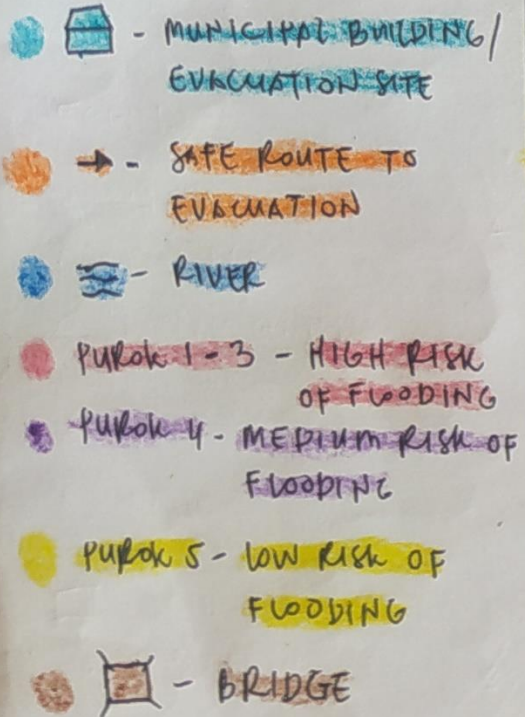 - MUNICIPAL BUILDING/
EVACUATION SITE
→ - SAFE ROUTE TO
EVACUATION
- RIVER
PUROK 1-3 - HIGH RISK
OF FLOODING
PUROK 4 - MEDIUM RISK OF
FLOODING
PUROK 5 - LOW RISK OF
FLOODING
- BRIDGE